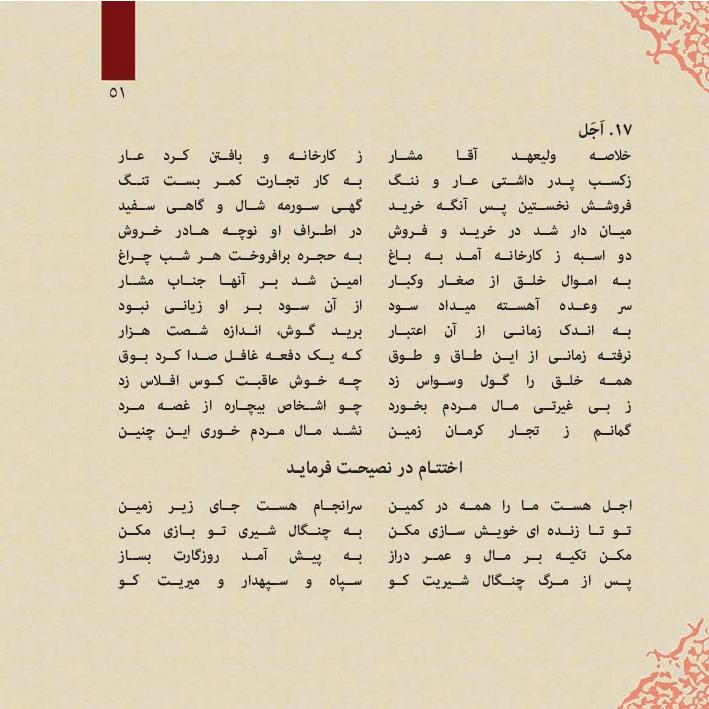 ۵۱
۱۷. اَجَل
خلاصه ولیعهد آقا مشار ز کارخانه و بافتن کرد عار
زکسب پدر داشتی عار و ننگ به کار تجارت کمر بست تنگ
فروشش نخستین پس آنگه خرید گهی سورمه شال و گاهی سفید
میان دار شد در خرید و فروش در اطراف او نوچه هادر خروش
دو اسبه ز کارخانه آمد به باغ به حجره برافروخت هر شب چراغ
به اموال خلق از صغار وکبار امین شد بر آنها جناب مشار
سر وعده آهسته میداد سود از آن سود بر او زیانی نبود
به اندک زمانی از آن اعتبار برید گوش، اندازه شصت هزار
نرفته زمانی از این طاق و طوق که یک دفعه غافل صدا کرد بوق
همه خلق را گول وسواس زد چه خوش عاقبت کوس افلاس زد
ز بی غیرتی مال مردم بخورد چو اشخاص بیچاره از غصه مرد
گمانم ز تجار کرمان زمین نشد مال مردم خوری این چنین
اختتام در نصیحت فرماید
اجل هست ما را همه در کمین سرانجام هست جای زیر زمین
تو تا زنده ای خویش سازی مکن به چنگال شیری تو بازی مکن
مکن تکیه بر مال و عمر دراز به پیش آمد روزگارت بساز
پس از مرگ چنگال شیریت کو سپاه و سپهدار و میریت کو